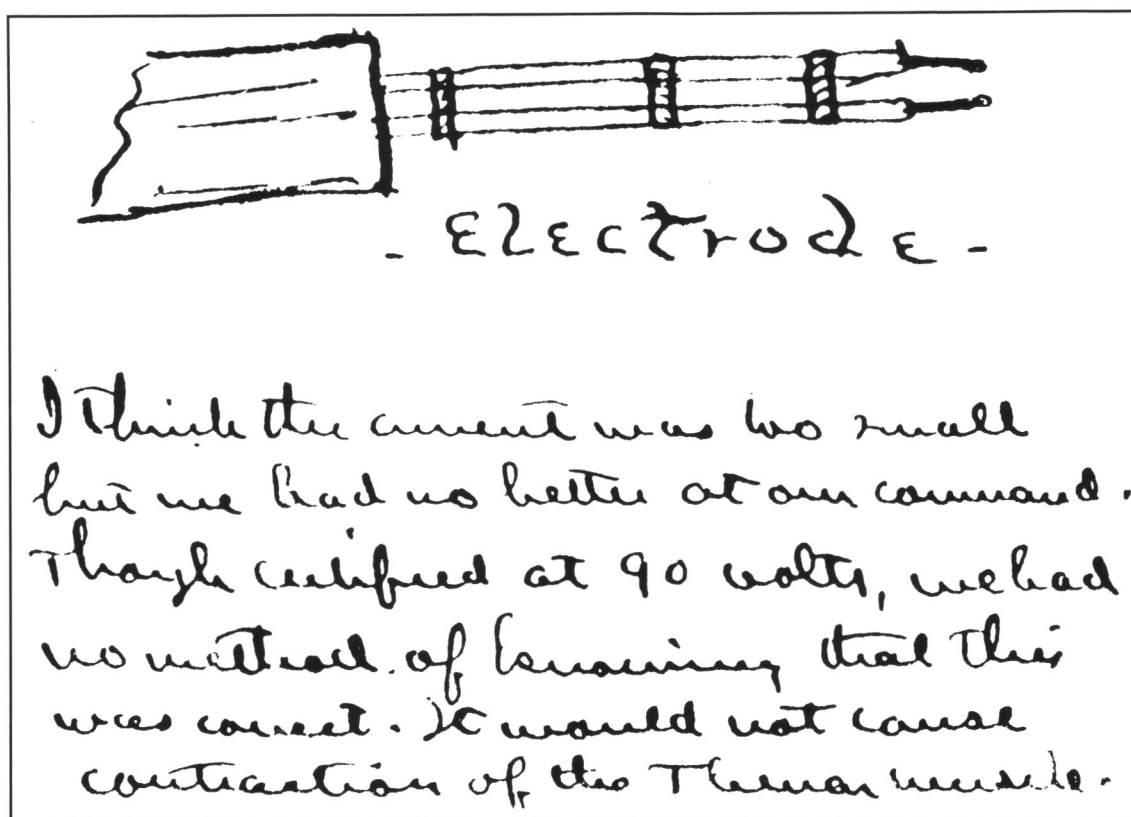 - Electrode -
I think the current was too small
but we had no better at our command.
Though certified at 90 volts, we had
no method of knowing that this
was correct. It would not cause
contraction of the Thenar muscle.